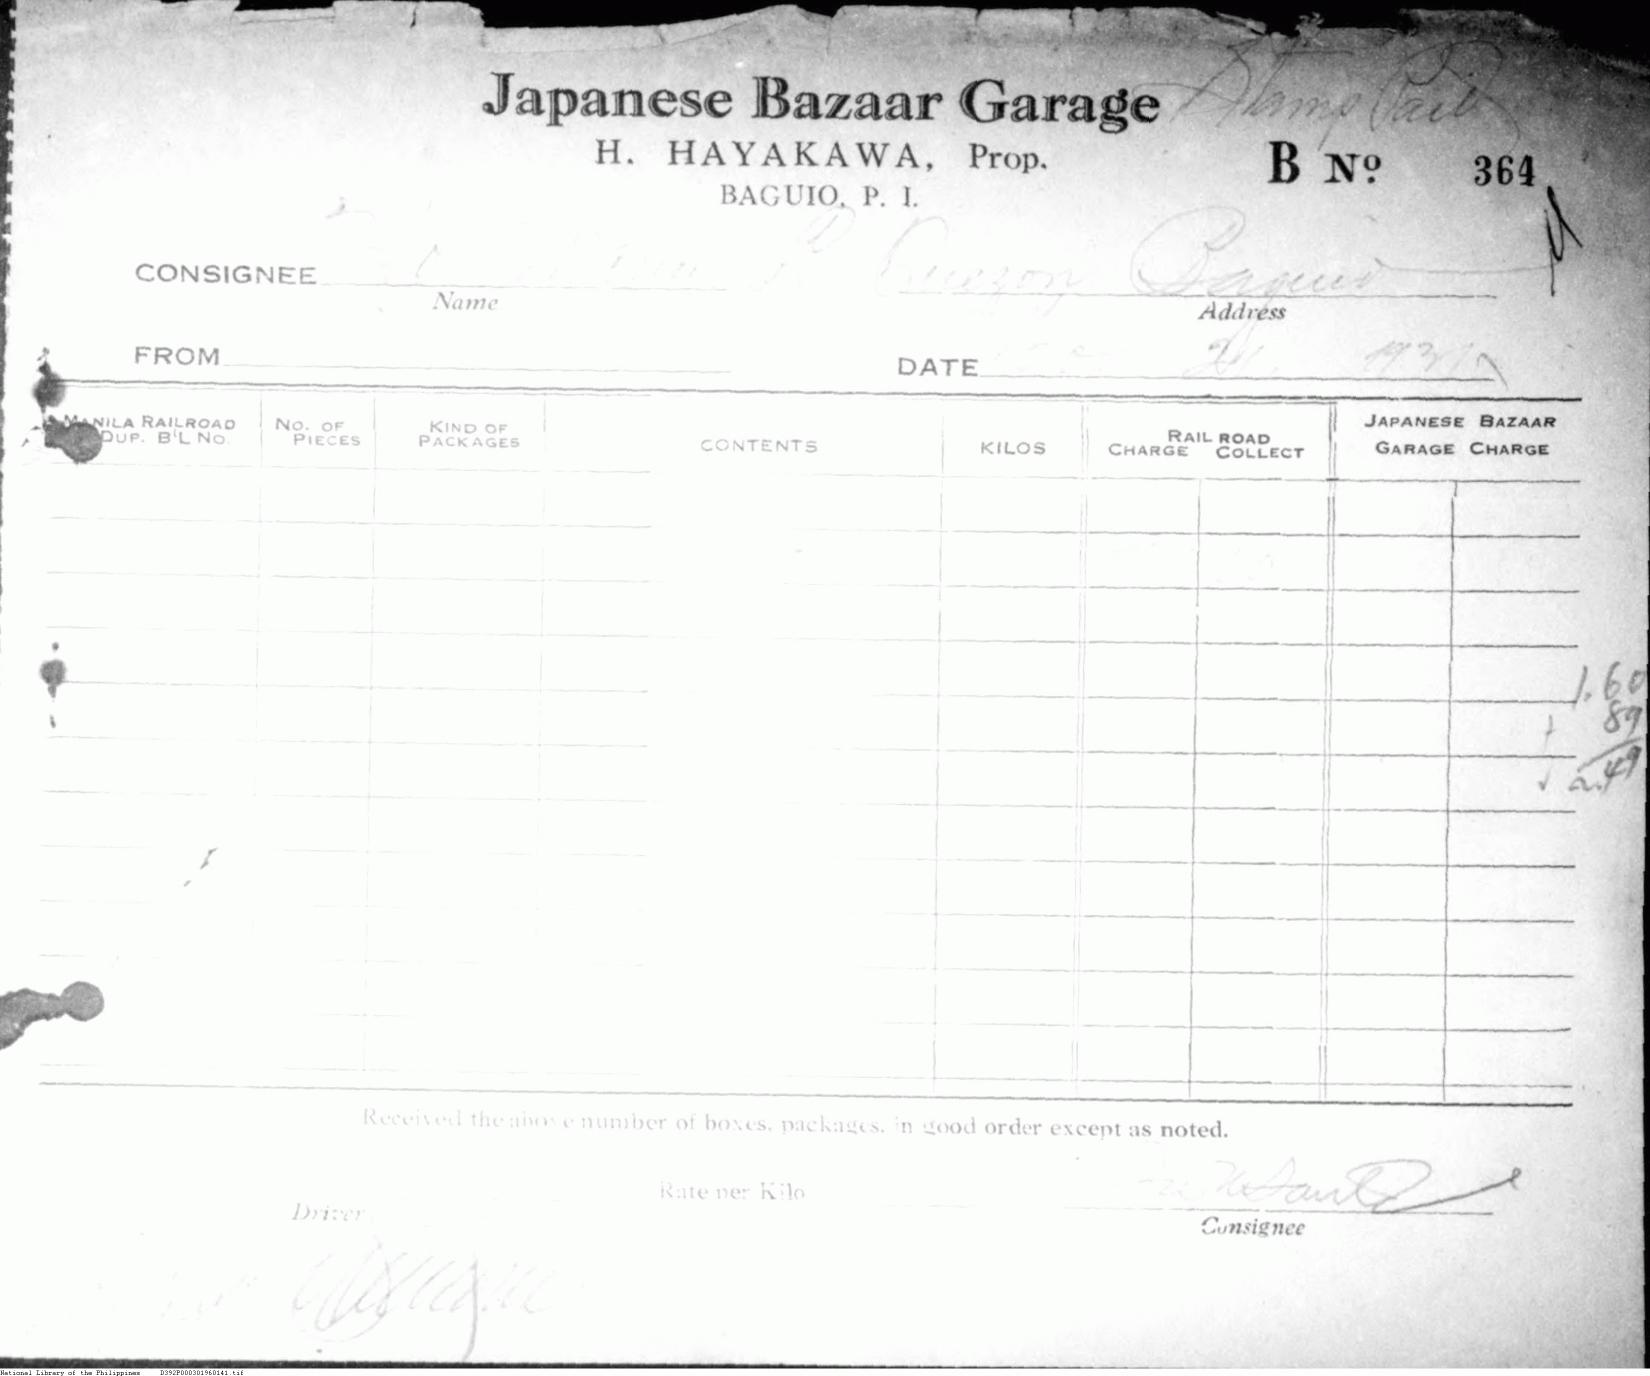 Japanese Bazaar Garage
Stamp Paid
H. HAYAKAWA, Prop.
B No 364
BAGUIO, P. I.
CONSIGNEE Quezon Baguio
Name Address
FROM DATE
MANILA RAILROAD DUP. B'L NO.
NO. OF PIECES
KIND OF PACKAGES
CONTENTS
KILOS
RAIL ROAD
CHARGE COLLECT
JAPANESE BAZAAR
GARAGE CHARGE
1.60
89
2.49
Received the above number of boxes, packages, in good order except as noted.
Rate per Kilo
Driver
Consignee
National Library of the Philippines D392P000301960141.tif